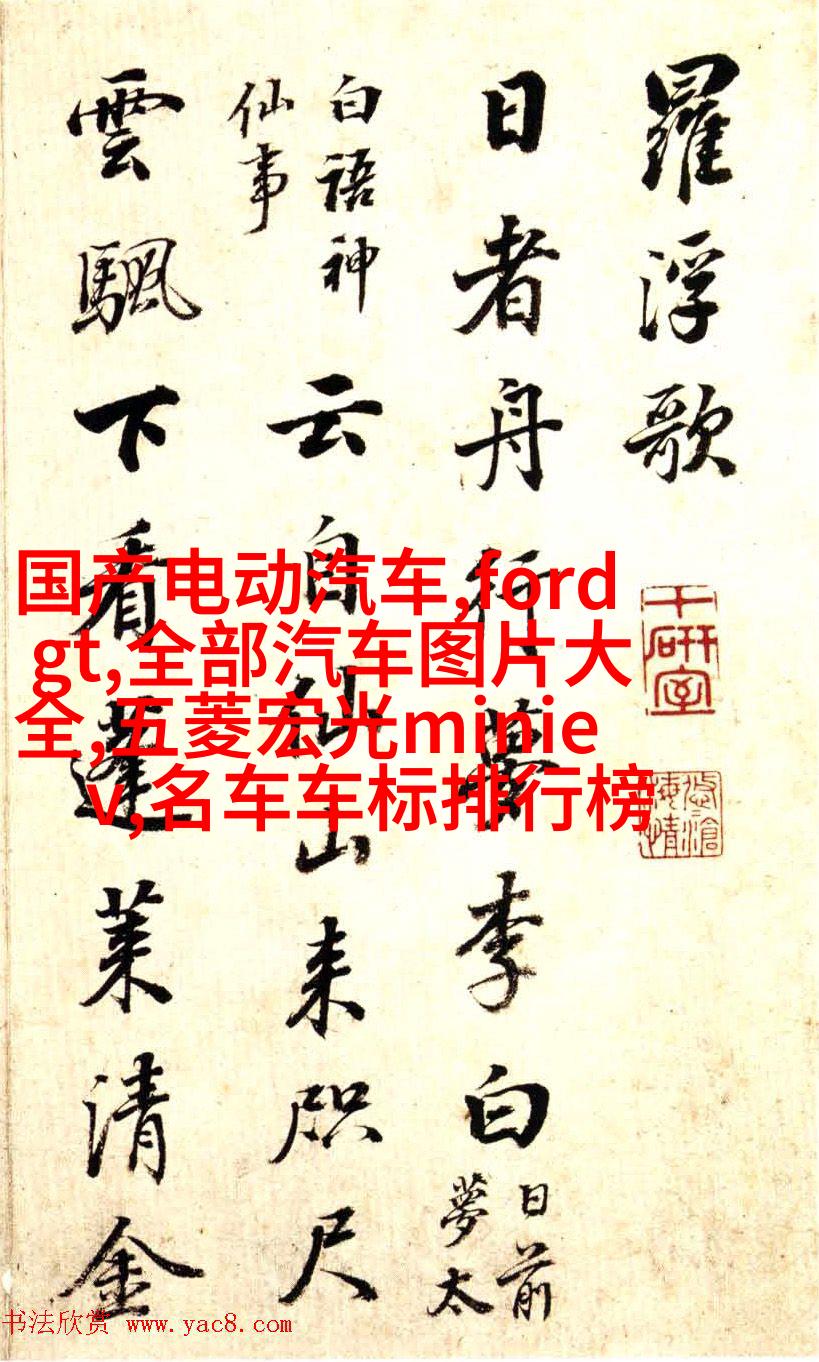 羅浮歌
日者舟行夢李白
日前
夢太
白語神
仙事
云自仙山来咫尺
雲颿下看蓬莱清金
千研室
悠滄
海情
国产电动汽车,ford
gt,全部汽车图片大
全,五菱宏光minie
v,名车车标排行榜
书法欣赏 www.yac8.com